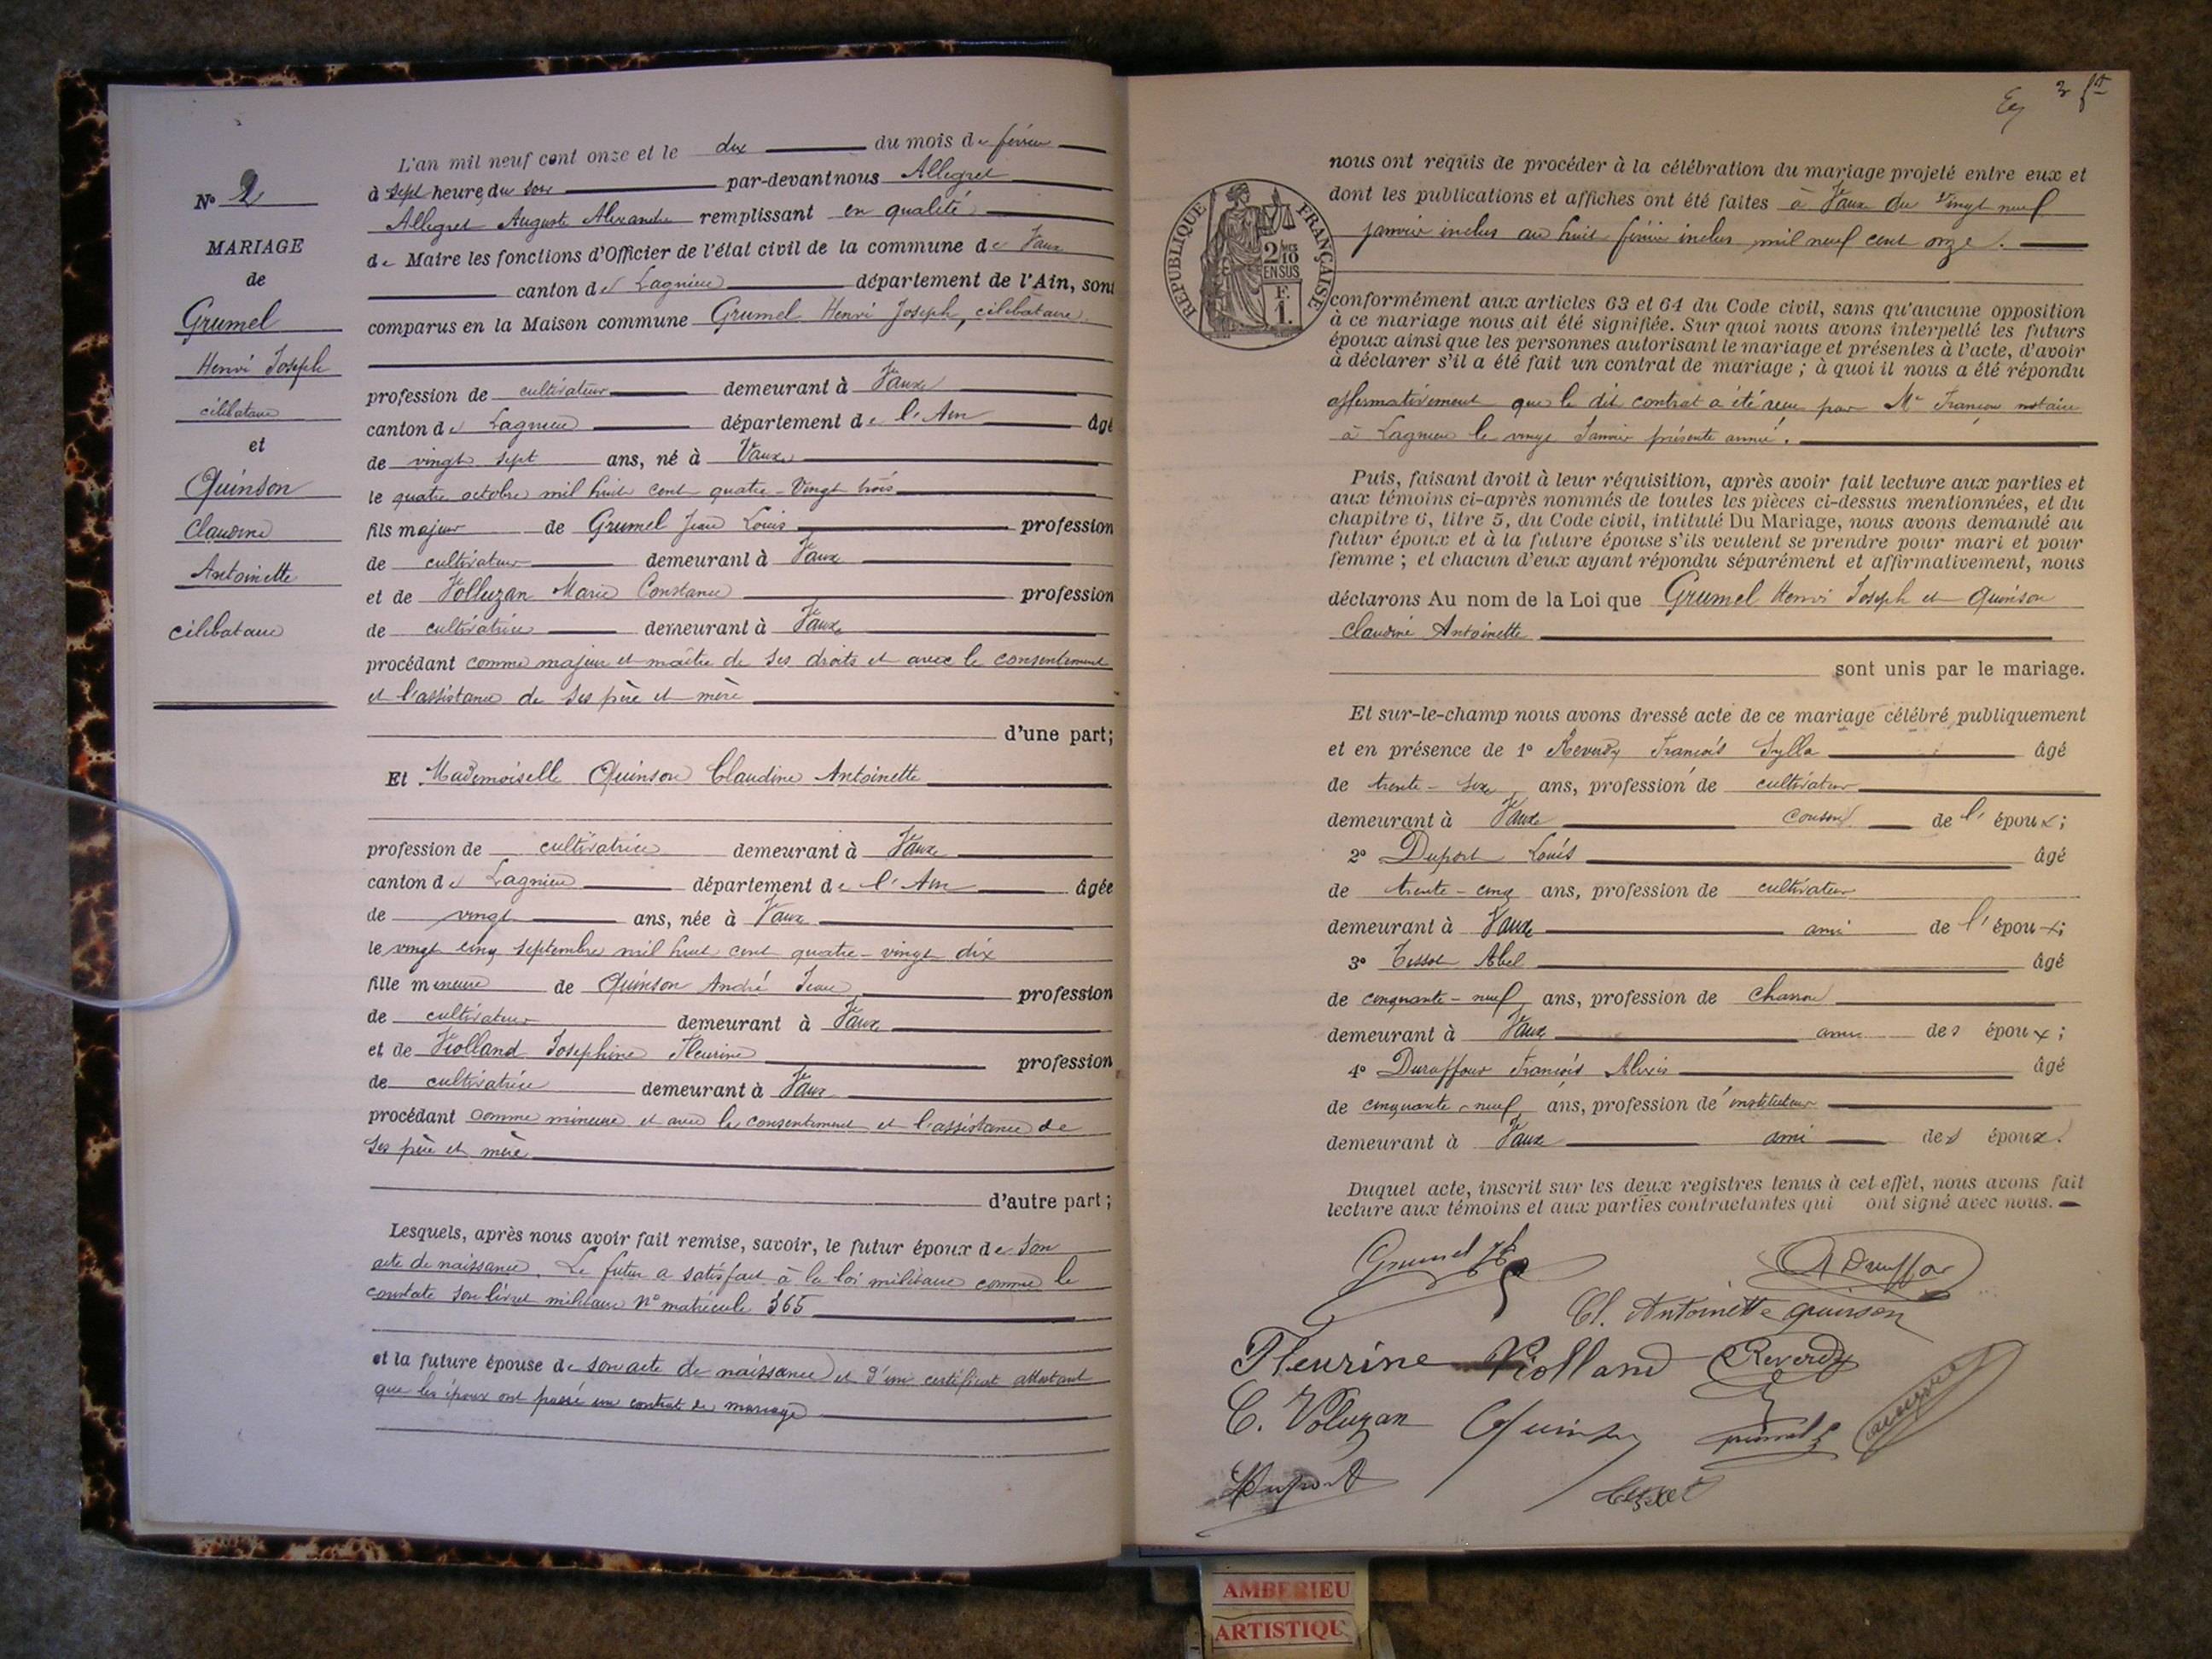 L'an mil neuf cent onze et le dix du mois de février
à sept heures du soir par-devant nous Allegret
Allegret Auguste Alexandre remplissant en qualité
de Maire les fonctions d'Officier de l'état civil de la commune de Vaux
canton de Lagnieu département de l'Ain, sont
comparus en la Maison commune Grumel Henri Joseph, célibataire
profession de cultivateur demeurant à Vaux
canton de Lagnieu département de l'Ain âgé
de vingt sept ans, né à Vaux
le quatre octobre mil huit cent quatre-vingt trois
fils majeur de Grumel Jean Louis profession
de cultivateur demeurant à Vaux
et de Volluzan Marie Constance profession
de cultivatrice demeurant à Vaux
procédant comme majeur et maître de ses droits et avec le consentement
et l'assistance de ses père et mère
d'une part;
Et Mademoiselle Quinson Claudine Antoinette
profession de cultivatrice demeurant à Vaux
canton de Lagnieu département de l'Ain âgée
de vingt ans, née à Vaux
le vingt cinq septembre mil huit cent quatre-vingt dix
fille mineure de Quinson André Jean profession
de cultivateur demeurant à Vaux
et de Violland Josephine Fleurine profession
de cultivatrice demeurant à Vaux
procédant comme mineure et avec le consentement et l'assistance de
ses père et mère
d'autre part;
Lesquels, après nous avoir fait remise, savoir, le futur époux de son
acte de naissance. Le futur a satisfait à la loi militaire comme le
constate son livret militaire N° matricule 365
et la future épouse de son acte de naissance et d'un certificat attestant
que les époux ont passé un contrat de mariage
N° 2
MARIAGE
de
Grumel
Henri Joseph
célibataire
et
Quinson
Claudine
Antoinette
célibataire
3
nous ont requis de procéder à la célébration du mariage projeté entre eux et
dont les publications et affiches ont été faites à Vaux du vingt neuf
janvier inclus au huit février inclus mil neuf cent onze.
RÉPUBLIQUE FRANÇAISE
2/10 EN SUS
F. 1.
conformément aux articles 63 et 64 du Code civil, sans qu'aucune opposition
à ce mariage nous ait été signifiée. Sur quoi nous avons interpellé les futurs
époux ainsi que les personnes autorisant le mariage et présentes à l'acte, d'avoir
à déclarer s'il a été fait un contrat de mariage; à quoi il nous a été répondu
affirmativement que le dit contrat a été reçu par Me notaire
à Lagnieu le Janvier présente année.
Puis, faisant droit à leur réquisition, après avoir fait lecture aux parties et
aux témoins ci-après nommés de toutes les pièces ci-dessus mentionnées, et du
chapitre 6, titre 5, du Code civil, intitulé Du Mariage, nous avons demandé au
futur époux et à la future épouse s'ils veulent se prendre pour mari et pour
femme; et chacun d'eux ayant répondu séparément et affirmativement, nous
déclarons Au nom de la Loi que Grumel Henri Joseph et Quinson
Claudine Antoinette
sont unis par le mariage.
Et sur-le-champ nous avons dressé acte de ce mariage célébré publiquement
et en présence de 1° Reverdy François Sylla âgé
de trente-six ans, profession de cultivateur
demeurant à Vaux cousin de l'époux;
2° Duport Louis âgé
de trente-cinq ans, profession de cultivateur
demeurant à Vaux ami de l'époux;
3° Tissot Abel âgé
de cinquante-neuf ans, profession de charron
demeurant à Vaux ami des époux;
4° Duraffour François Alexis âgé
de cinquante-neuf ans, profession de instituteur
demeurant à Vaux ami des époux.
Duquel acte, inscrit sur les deux registres tenus à cet effet, nous avons fait
lecture aux témoins et aux parties contractantes qui ont signé avec nous.
Grumel
Cl. Antoinette Quinson
Fleurine Violland Reverdy
C. Voluzan Quinson Grumel
Duport
AMBERIEU
ARTISTIQU